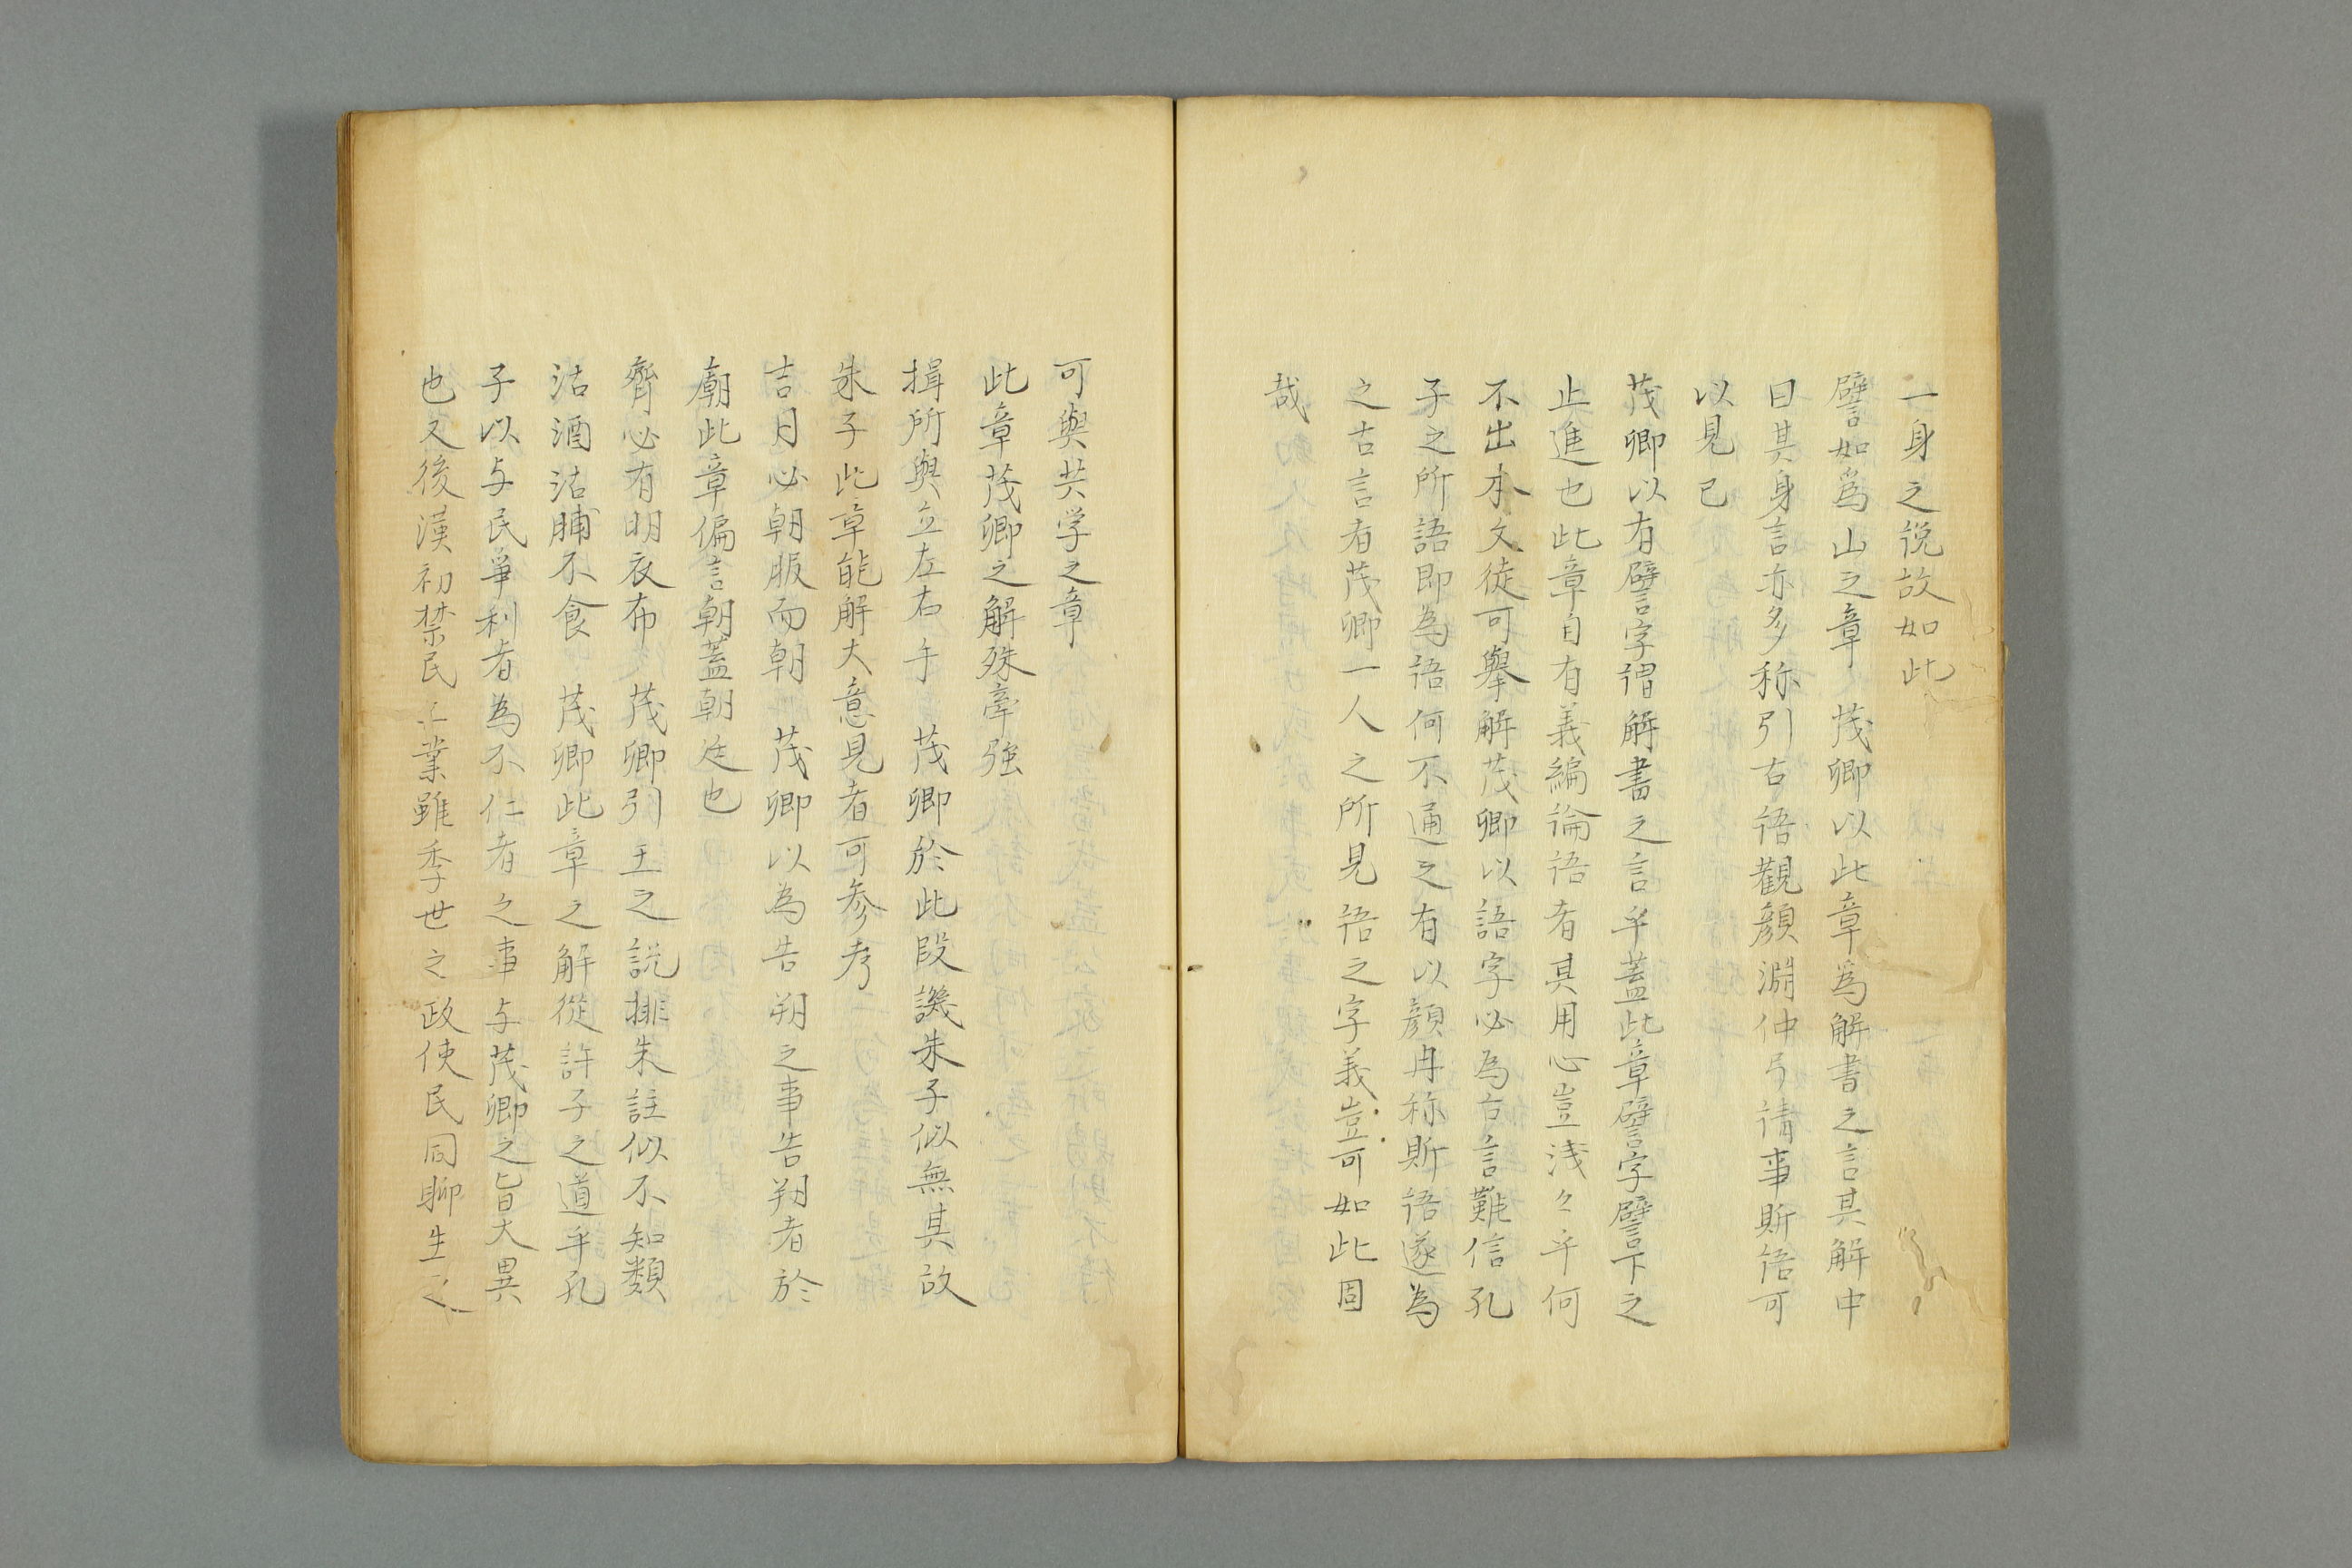 一身之説故如此
譬如爲山之章 茂卿以此章爲解書之言其解中
曰其身言亦多称引古語觀顔淵仲弓請事斯語可
以見已
茂卿以有譬字謂解書之言乎蓋此章譬字譬下之
止進也此章自有義編論語者其用心豈淺々乎何
不出本文徒可擧解茂卿以語字必為古言難信孔
子之所語即為語何不通之有以顔冉称斯語遂為
之古言者茂卿一人之所見語之字義豈可如此固
哉
可與共学之章
此章茂卿之解殊牽強
揖所與立左右手 茂卿於此段譏朱子似無其故
朱子此章能解大意見者可参考
吉月必朝服而朝 茂卿以為告朔之事告朔者於
廟此章偏言朝蓋朝廷也
齊必有明衣布 茂卿引王之説排朱註似不知類
沽酒沽脯不食 茂卿此章之解從許子之道乎孔
子以与民爭利者為不仁者之事与茂卿之旨大異
也又後漢初禁民二業雖季世之政使民同聊生之